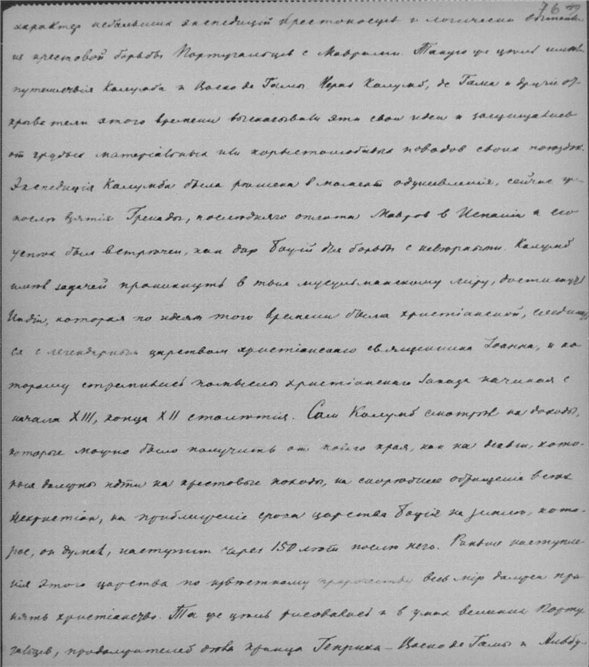 76
характер небольших экспедицій крестоносцев и логически
из крестовой борьбы Португальцев с Маврами. Такую же цель имели
путешествія Колумба и Васко де Гамы. Колумб, де Гама и другіе от-
крыватели этого времени высказывали эти свои идеи и защищались
от грубых матеріальных или корыстолюбивых поводов своих поездок.
Экспедиція Колумба была решена в момент одушевленія, сейчас же
после взятія Гренады, последняго оплота Мавров в Испаніи и его
успех был встречен, как дар Божій для борьбы с неверными. Колумб
имел задачей проникнуть в тыл мусульманскому міру, достигнуть
Индіи, которая по идеям того времени была христіанской,
ся с легендарным царством христіанскаго священника Іоанна, и ко-
торому стремились помыслы христіанскаго Запада начиная с
начала XIII, конца XII столетія. Сам Колумб смотрел на доходы,
которые можно было получить от новаго края, как на деньги, кото-
рыя должны идти на крестовые походы, на скорейшее обращение всех
нехристіан, на приближеніе срока царства Божія на земле, кото-
рое, он думал, наступит через 150 лет после него. Раньше наступле-
нія этого царства по известному пророчеству весь мір должен при-
нять христіанство. Та же цель рисовалась и в умах великих Порту-
гальцев, продолжателей дела принца Генриха – Васко де Гамы и Альбу-